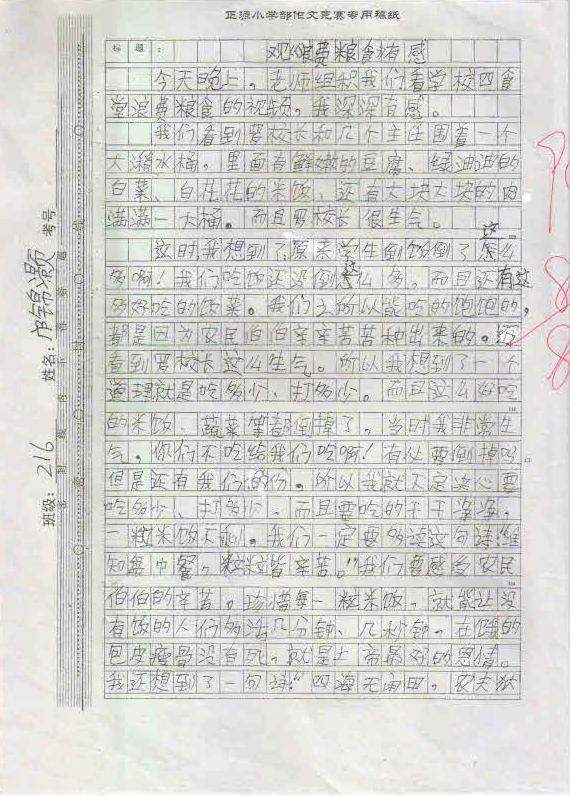 正源小学部作文竞赛专用稿纸
标题:
观"浪费粮食"有感
今天晚上,老师组织我们看学校四食
堂浪费粮食的视频,我深深有感。
我们看到罗校长和几个主任围着一个
大潲水桶,里面有鲜嫩的豆腐、绿油油的
白菜、白花花的米饭,还有大块大块的肉
满满一大桶。而且罗校长很生气。
这时我想到了原来学生倒饭倒了这怎么
多啊!我们吃饭还没倒这么多,而且还有这
多好吃的饭菜。我们之所以能吃的饱饱的,
都是因为农民伯伯辛辛苦苦种出来的。还
看到罗校长这么生气。所以我想到了一个
道理就是吃多少、打多少。而且这么好吃
的米饭、蔬菜等都倒掉了,当时我非常生
气。你们不吃给我们吃啊!有必要倒掉吗。
但是还有我们的份。所以我就下定决心要
吃多少、打多少,而且要吃的干干净净,
一粒米饭不剩。我们一定要多读这句诗:"谁
知盘中餐,粒粒皆辛苦。"我们要感受农民
伯伯的辛苦。珍惜每一粒米饭,就能让没
有饭的人们多活几分钟、几秒钟,在饿的
包皮瘦骨没有死,就是上帝最好的恩情。
我还想到了一句诗:"四海无闲田,农夫犹
班级:216
姓名:锦灏
考号